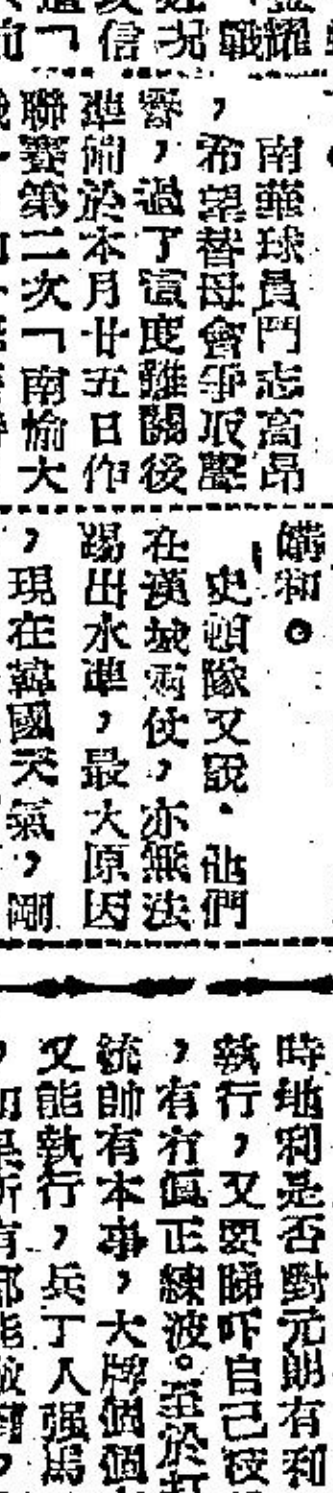 南華球員鬥志高昂
,希望替母會爭取聲
譽,過了這度難關後
準備於本月廿五日作
聯賽第二次「南愉大
講和。
史頓隊又說.他們
在漢城兩仗,亦無法
踢出水準,最大原因
,現在韓國天氣,剛
時地利是否對元朗有利
執行,又要睇吓自己
,有冇真正練波。至於
統帥有本事,大牌個個
又能執行,兵丁人强馬